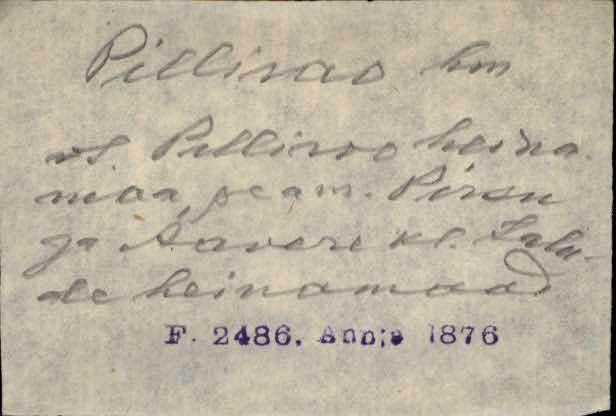 Pillirao hm
vt. Pilliroo heina-
maa, peam. Pirsu
ja Aavere kl. Talu-
de heinamaad
F. 2486. Annja 1876